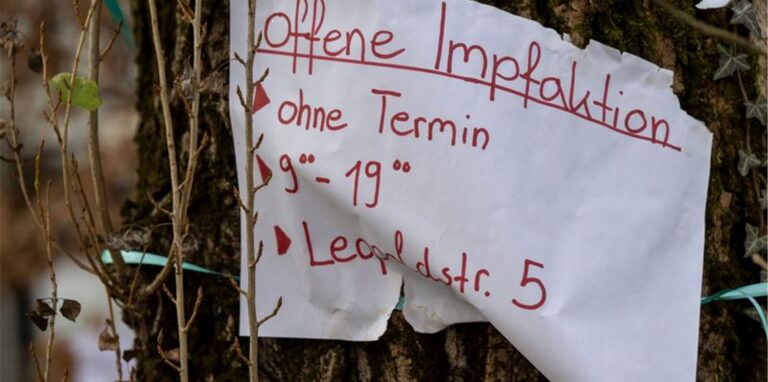 offene Impfaktion
ohne Termin
9°° - 19°°
Leopoldstr. 5